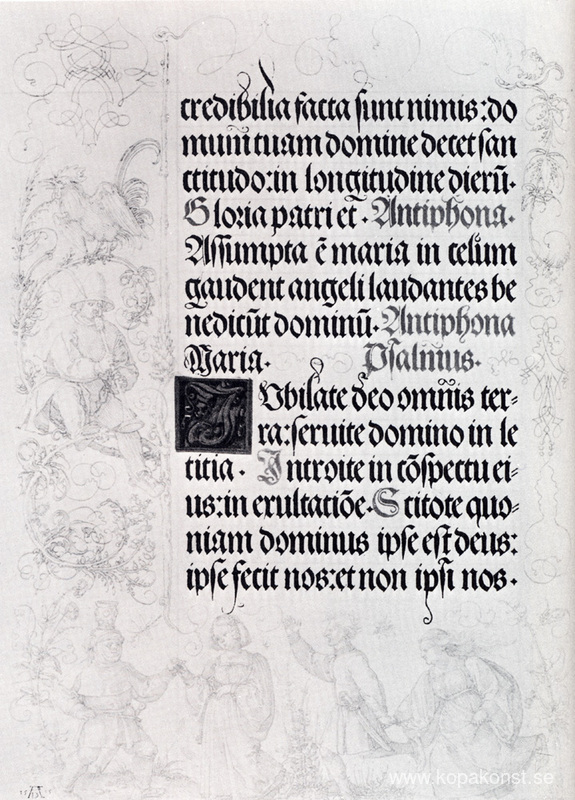 credibilia facta sunt nimis:do
mum tuam domine decet san
ctitudo:in longitudine dierū.
Gloria patri et. Antiphona.
Assumpta ē maria in celum
gaudent angeli laudantes be
nedicūt dominū. Antiphona
Maria. Psalmus.
IVbilate deo omnis ter-
ra:seruite domino in le
titia. Introite in cōspectu ei-
us:in exultatiōe. Scitote quo-
niam dominus ipse est deus:
ipse fecit nos:et non ipsi nos.
www.kopakonst.se